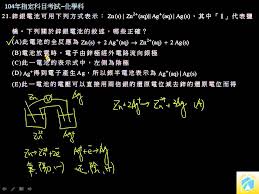 104年指定科目考試─化學科
21.鋅銀電池可用下列方式表示：Zn(s)│Zn²⁺(aq)∥Ag⁺(aq)│Ag(s)，其中「∥」代表鹽
橋。下列關於鋅銀電池的敘述，哪些正確？
(A)此電池的全反應為 Zn(s) + 2 Ag⁺(aq) → Zn²⁺(aq) + 2 Ag(s)
(B)電池放電時，電子從鋅極經外電路流向銀極
(C)此一電池的表示式中，左側為陰極
(D) Ag⁺得到電子產生Ag，所以銀半電池表示為 Ag⁺(aq)│Ag(s)
(E)此一電池的電壓可以直接用兩個銀的還原電位減去鋅的還原電位而得
Zn + 2Ag⁺ → Zn²⁺ + 2Ag
Zn
Ag
Zn²⁺
Ag⁺
Zn → Zn²⁺ + 2e⁻
Ag⁺ + e⁻ → Ag